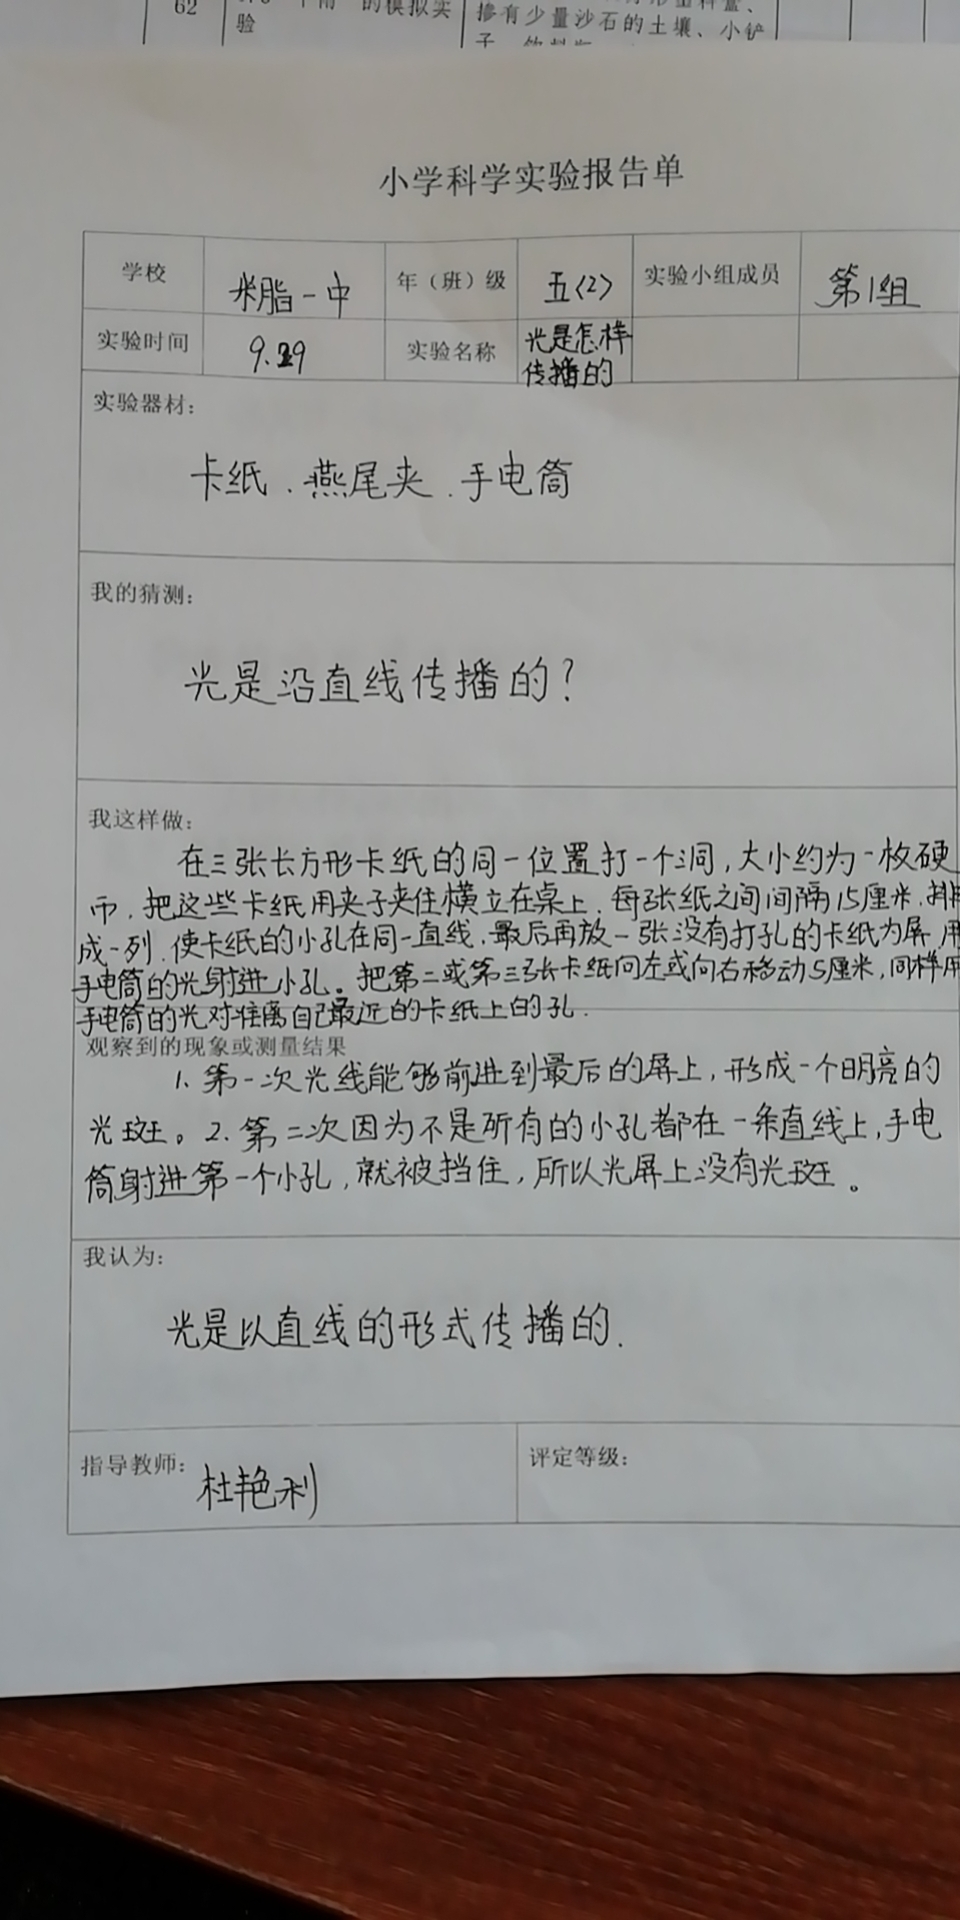 62
的模拟实
验
掺有少量沙石的土壤、小铲
小学科学实验报告单
学校 米脂一中 年（班）级 五〈2〉 实验小组成员 第1组
实验时间 9.29 实验名称 光是怎样
传播的
实验器材：
卡纸、燕尾夹、手电筒
我的猜测：
光是沿直线传播的？
我这样做：
在三张长方形卡纸的同一位置打一个洞，大小约为一枚硬
币，把这些卡纸用夹子夹住横立在桌上，每张纸之间间隔15厘米，排
成一列，使卡纸的小孔在同一直线，最后再放一张没有打孔的卡纸为屏，用
手电筒的光射进小孔。把第二或第三张卡纸向左或向右移动5厘米，同样用
手电筒的光对准离自己最近的卡纸上的孔．
观察到的现象或测量结果
1. 第一次光线能够前进到最后的屏上，形成一个明亮的
光斑。2. 第二次因为不是所有的小孔都在一条直线上，手电
筒射进第一个小孔，就被挡住，所以光屏上没有光斑。
我认为：
光是以直线的形式传播的．
指导教师： 杜艳利 评定等级：